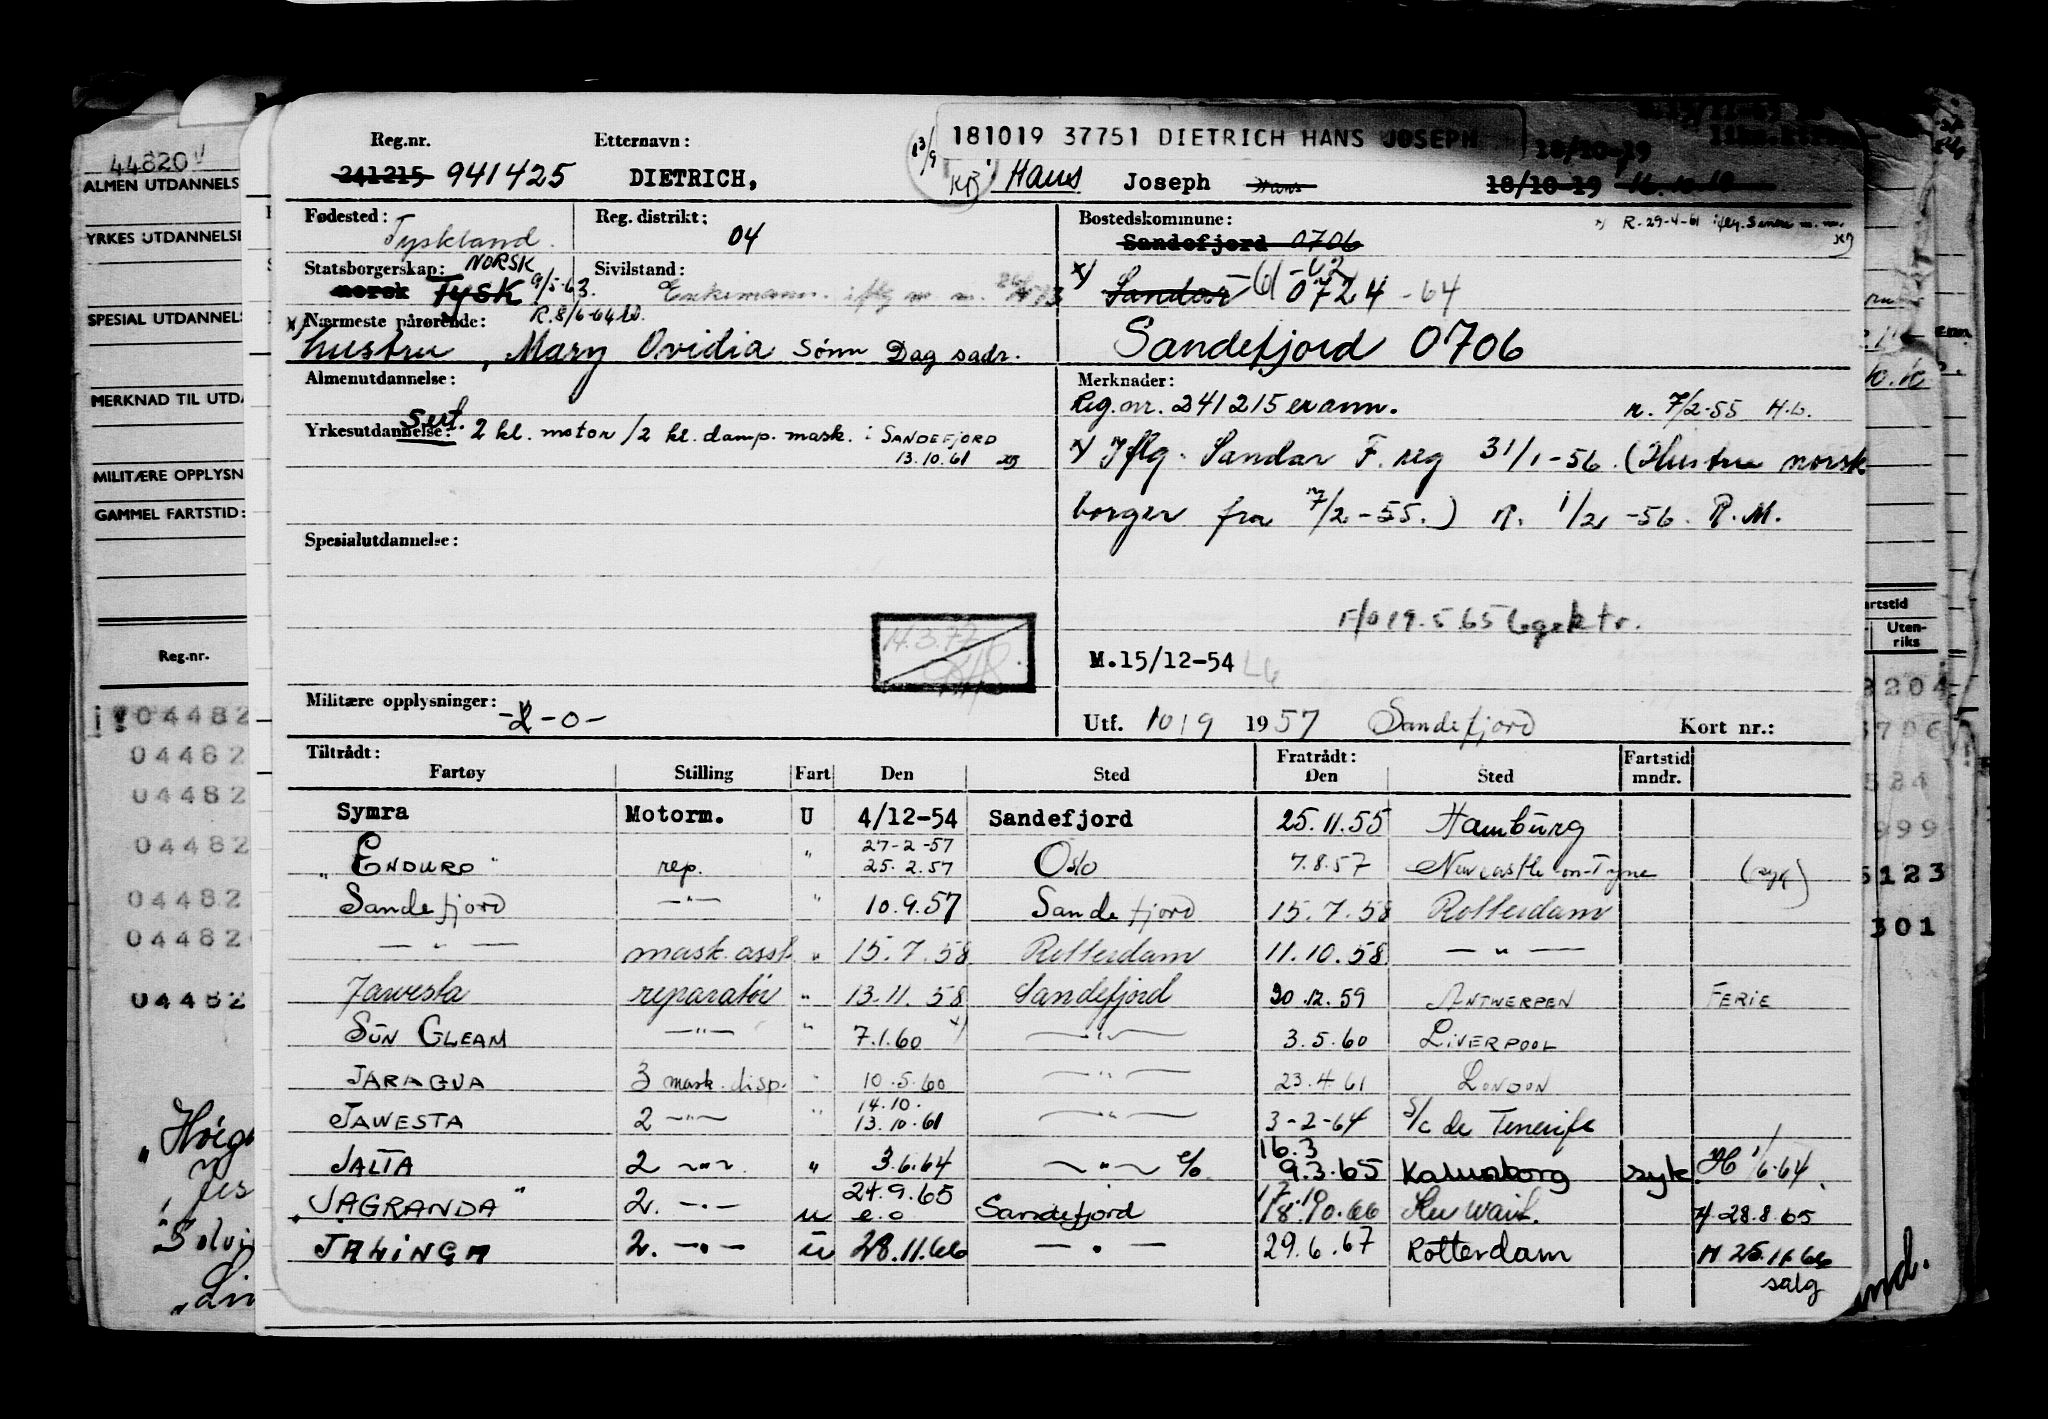 44820
ALMEN UTDANNELS
YRKES UTDANNELSE
SPESIAL UTDANNELS
MERKNAD TIL UTDA
MILITÆRE OPPLYSN
GAMMEL FARTSTID:
Reg.nr.
04482
04482
04482
04482
04482
04482
04482
Reg.nr. Etternavn: 13/9 181019 37751 DIETRICH HANS JOSEPH 18/10-19
241215 941425 DIETRICH, KB Hans Joseph Hans 18/10-19 16.10.19
Fødested: Tyskland. Reg. distrikt: 04 Bostedskommune: x) R. 29-4-61
Sandefjord 0706
Statsborgerskap: NORSK norsk Tysk 9/5-63. Sivilstand: Enkemann. iflg m m.
x) Sandar 61 -62 0724 -64
R. 8/6-64
x) Nærmeste pårørende:
hustru, Mary Ovidia Sønn Dag sadr. Sandefjord 0706
Almenutdannelse: Merknader:
Reg.nr. 241215 er ann. r. 7/2-55 H.L.
Yrkesutdannelse: Sert. 2 kl. motor/2 kl. damp. mask. i SANDEFJORD
13.10.61
x) Iflg. Sandar F. reg 31/1-56. (Hustru norsk
borger fra 7/2-55.) R. 1/2-56. R.M.
Spesialutdannelse:
F/O 19.5 65
14.3.72
M.15/12-54
Militære opplysninger: -0-
Utf. 10/9 1957 Sandefjord Kort nr.:
Tiltrådt: Fratrådt: Fartstid
Fartøy Stilling Fart Den Sted Den Sted mndr.
Symra Motorm. U 4/12-54 Sandefjord 25.11.55 Hamburg
27-2-57
„ENDURO" rep. " 25.2.57 Oslo 7.8.57 Newcastle on-Tyne (syk)
Sandefjord —"— " 10.9.57 Sandefjord 15.7.58 Rotterdam
— " — mask. asst. " 15.7.58 Rotterdam 11.10.58 — " —
Jawesta reparatør " 13.11.58 Sandefjord 30.12.59 ANTWERPEN FERIE
SUN GLEAM —"— " 7.1.60 x) —"— 3.5.60 LIVERPOOL
JARAGUA 3 mask. disp. " 10.5.60 —"— 23.4.61 LONDON
14.10.
JAWESTA 2 —"— " 13.10.61 —"— 3-2-64 S/c de Tenerife
16.3
JALTA 2 —"— " 3.6.64 —"— e/o. 9.3.65 Kalundborg syk. H 1/6-64.
24.9.65 17.10
„JAGRANDA" 2. —"— u e.o Sandefjord 18.10.66 Kuwait. H 28.8.65
JALINGA 2. —"— u 28.11.66 — " — 29.6.67 Rotterdam H 25.11.66
salg
artstid
Uten-
riks
8204
999
5123
301